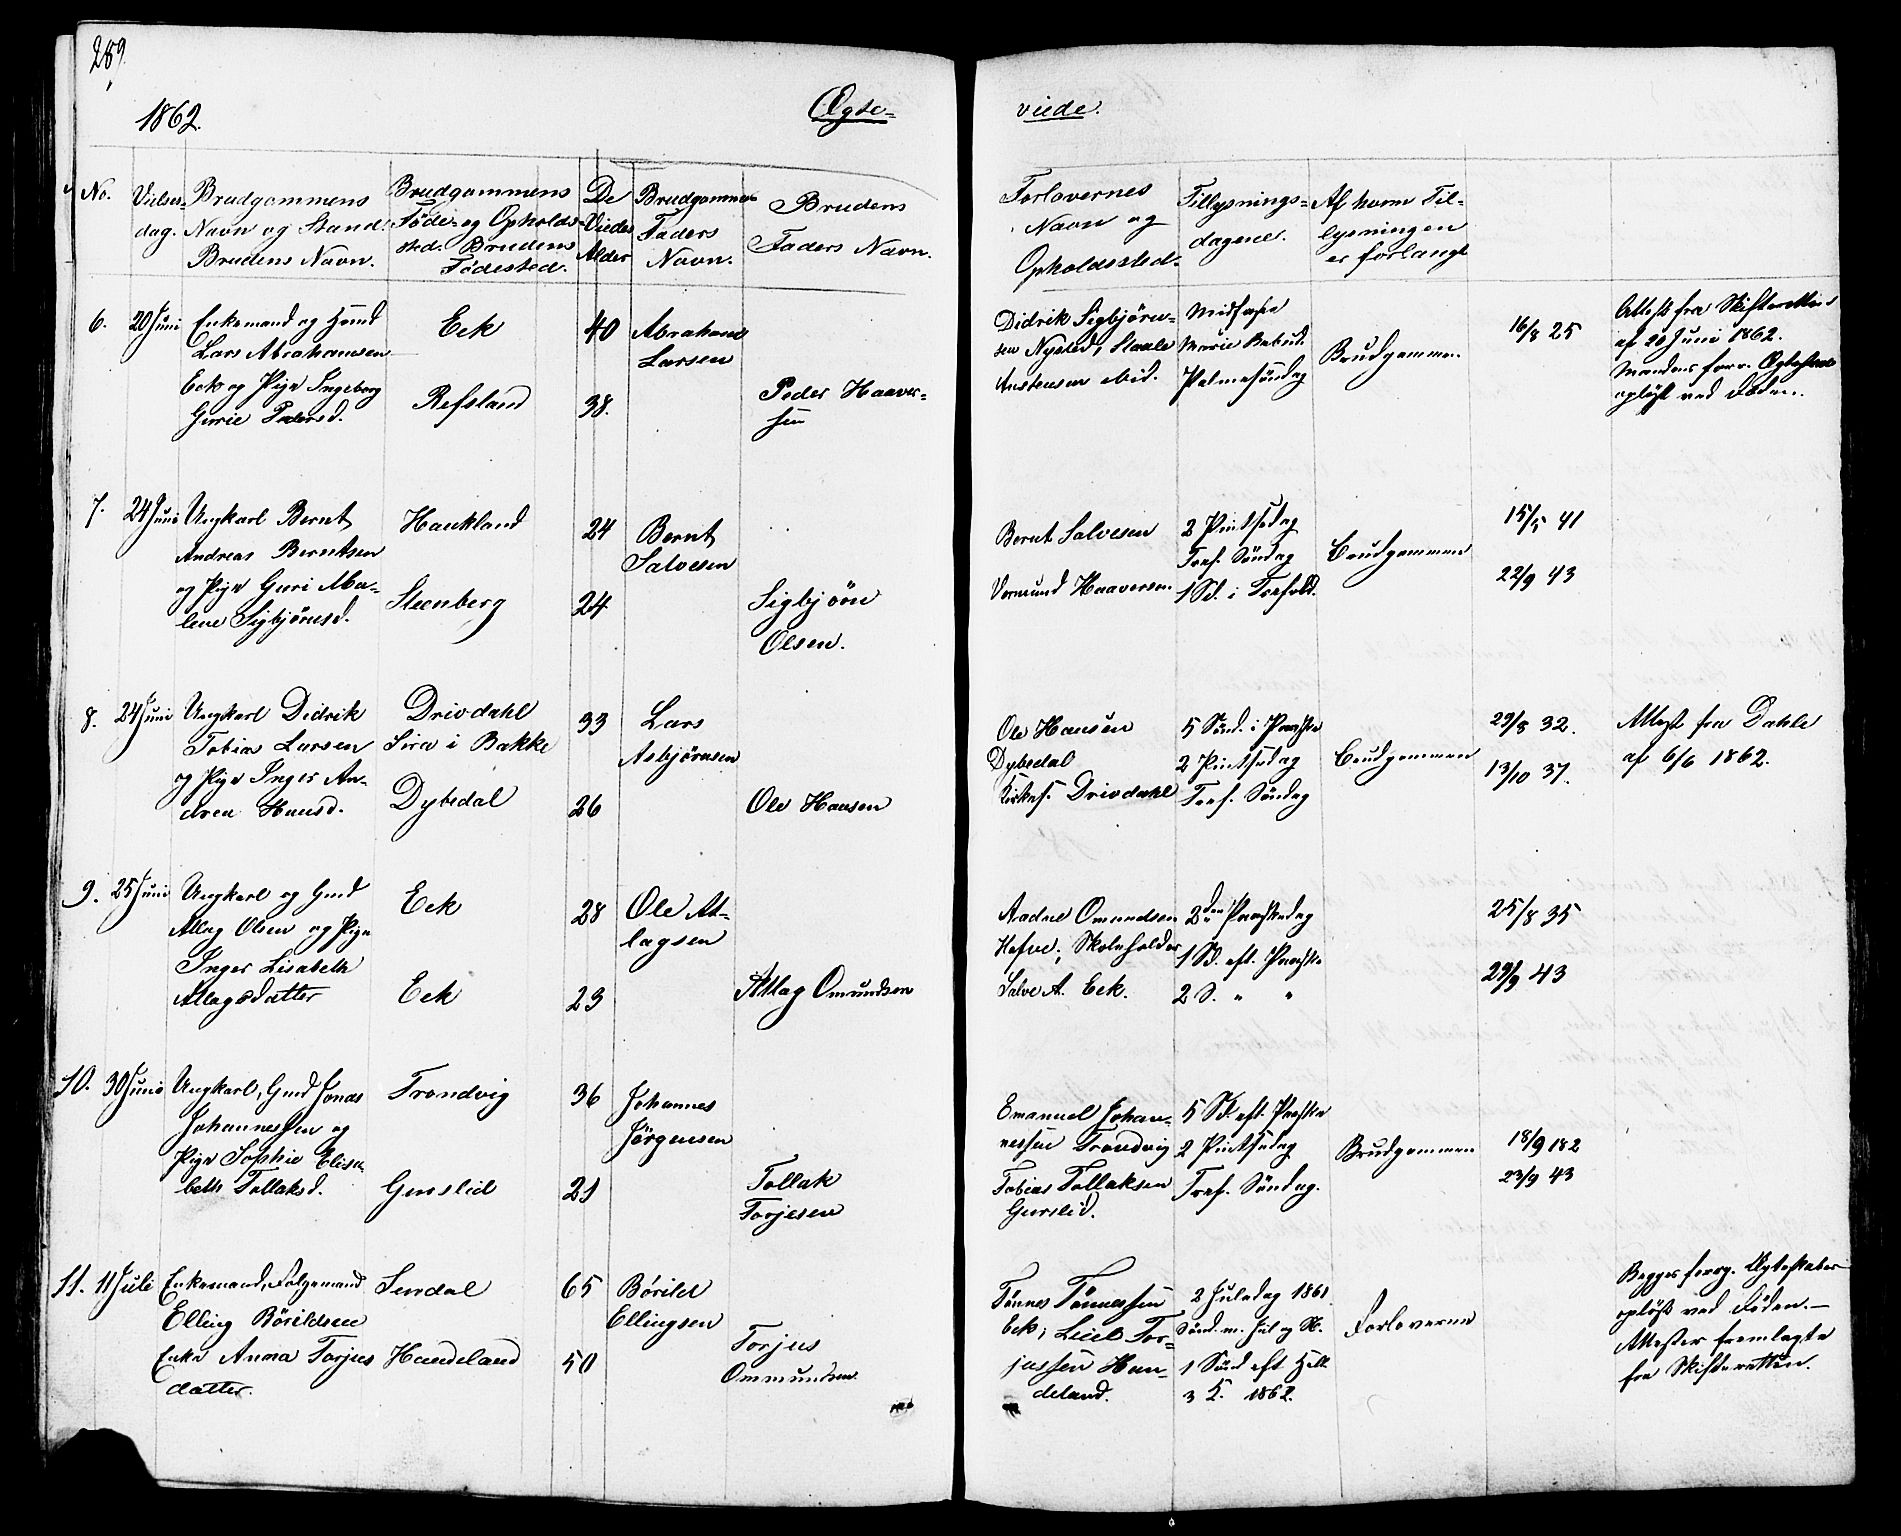 289.
1862.
Ægte-
viede.
No.
Vielses-
dag.
Brudgommens
Navn og Stand.
Brudens Navn.
Brudgommens
Føde- og Opholds-
sted. Brudens
Fødested.
De
Viedes
Alder
Brudgommens
Faders
Navn.
Brudens
Faders Navn.
Forlovernes
Navn og
Opholdssted.
Tillysnings-
dagene.
Af hvem Til-
lysningen
er forlangt
6.
20 Juni
Enkemand og
Lars Abrahamsen
Eek og Pige Ingeborg
Gurie Pedersd.
Eek
Refsland
40
38.
Abraham
Larsen
Peder Haaver-
sen
Didrik Sigbjörn-
sen Nysted,
Austensen ibid.
Midfaste
Marie Bebud.
Palmesöndag
Brudgommen
16/8 25
Attest fra Skifteretten
af 20 Juni 1862.
Mandens forr. Ægteskab
opløst ved Døden.
7.
24 Juni
Ungkarl Bernt
Andreas Berntsen
og Pige Guri Ma-
lene Sigbjörnsd.
Haukland
Steenberg
24
24
Bernt
Salvesen
Sigbjörn
Olsen.
Bernt Salvesen
Haaversen
2 Pintsedag
Tref. Söndag
1 Sd. i Trefold.
Brudgommen
15/5 41
22/9 43
8.
24 Juni
Ungkarl Didrik
Tobias Larsen
og Pige Inger An-
drea Hansd.
Drivdahl
Sira i Bakke
Dybedal
33
26
Lars
Asbjörnsen
Ole Hansen
Ole Hansen
Dybedal
Drivdahl
5 Sönd. i Paaske
2 Pintsedag
Tref. Söndag
Brudgommen
29/8 32.
13/10 37.
Attest fra Dahle
af 6/6 1862.
9.
25 Juni
Ungkarl og Gmd
Atlag Olsen og Pige
Inger Lisabeth
Atlagsdatter
Eek
Eek
28
23
Ole At-
lagsen
Atlag Omundsen
Aadne Omundsen
Skoleholder
Salve A. Eek.
2den Paaskedag
1 Sd. eft. Paaske
2 S. " "
25/8 35
29/9 43
10.
30 Juni
Ungkarl, Gmd Jonas
Johannessen og
Pige Sophie Elisa-
beth Tollaksd.
Trondvig
Gyuslid
36
21
Johannes
Jörgensen
Tollak
Torjesen
Emanuel Johan-
nessen Trondvig
Tobias Tollaksen
5 Sd. eft. Paaske
2 Pintsedag
Tref. Söndag.
Brudgommen
18/9 182
23/9 43
11.
11 Juli
Enkemand, Følgemand
Elling Börildsen
Enke Anna Torjus
datter.
Sindal
Handeland
65
50
Börild
Ellingsen
Torjus
Ommundsen
Tönnes Tönnessen
Eek; Tor-
jussen Han-
deland.
2 Juledag 1861
Sönd. m. Jul og N.
1 Sönd eft. Hell.
3 K. 1862.
Forloverne
Begges forrg. Ægteskaber
opløst ved Døden. —
Attester fremlagte
fra Skifteretten.